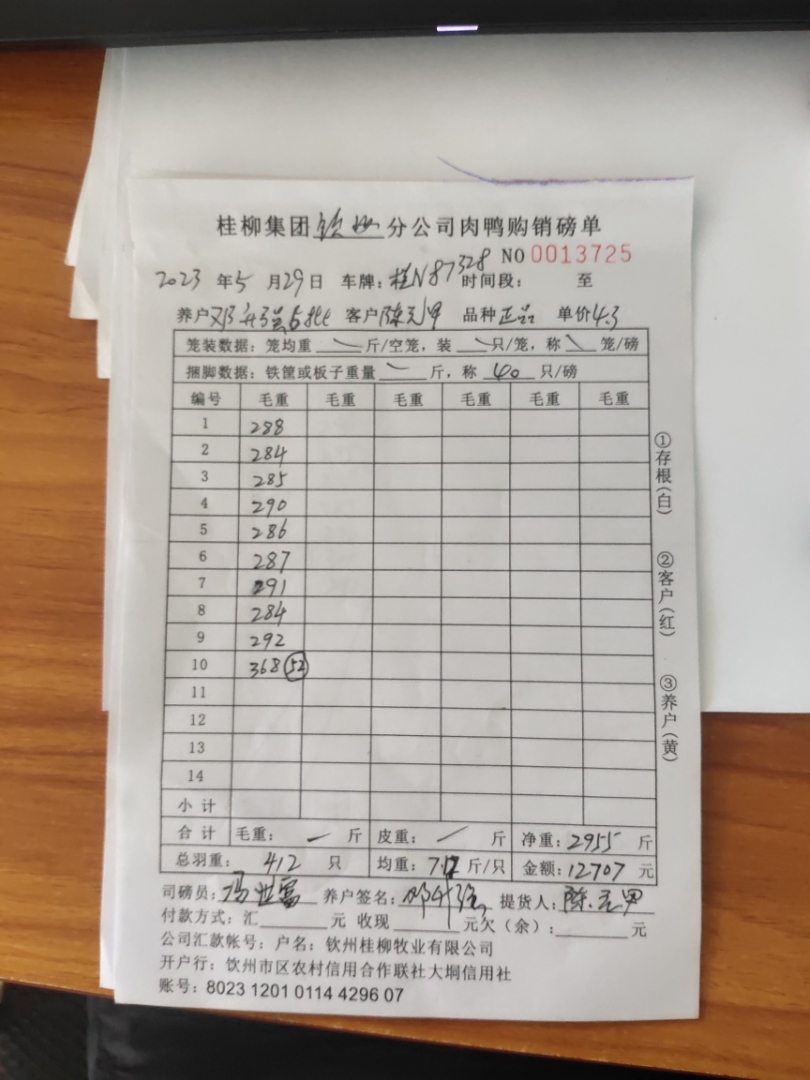 桂柳集团钦州分公司肉鸭购销磅单
NO 0013725
2023年5月29日 车牌：桂N87328 时间段： 至
养户邓升强 客户陈元甲 品种正品 单价4.3
笼装数据：笼均重 斤/空笼，装 只/笼，称 笼/磅
捆脚数据：铁筐或板子重量 斤，称 40 只/磅
编号 毛重 毛重 毛重 毛重 毛重 毛重
1 288
2 284
3 285
4 290
5 286
6 287
7 291
8 284
9 292
10 368 52
11
12
13
14
小计
合计 毛重：一 斤 皮重： 斤 净重：2955 斤
总羽重：412 只 均重： 斤/只 金额：12707 元
司磅员：冯世富 养户签名：邓升强 提货人：陈元甲
付款方式：汇 元 收现 元欠（余）： 元
公司汇款帐号：户名：钦州桂柳牧业有限公司
开户行：钦州市区农村信用合作联社大垌信用社
账号：8023 1201 0114 4296 07
①存根(白)
②客户(红)
③养户(黄)